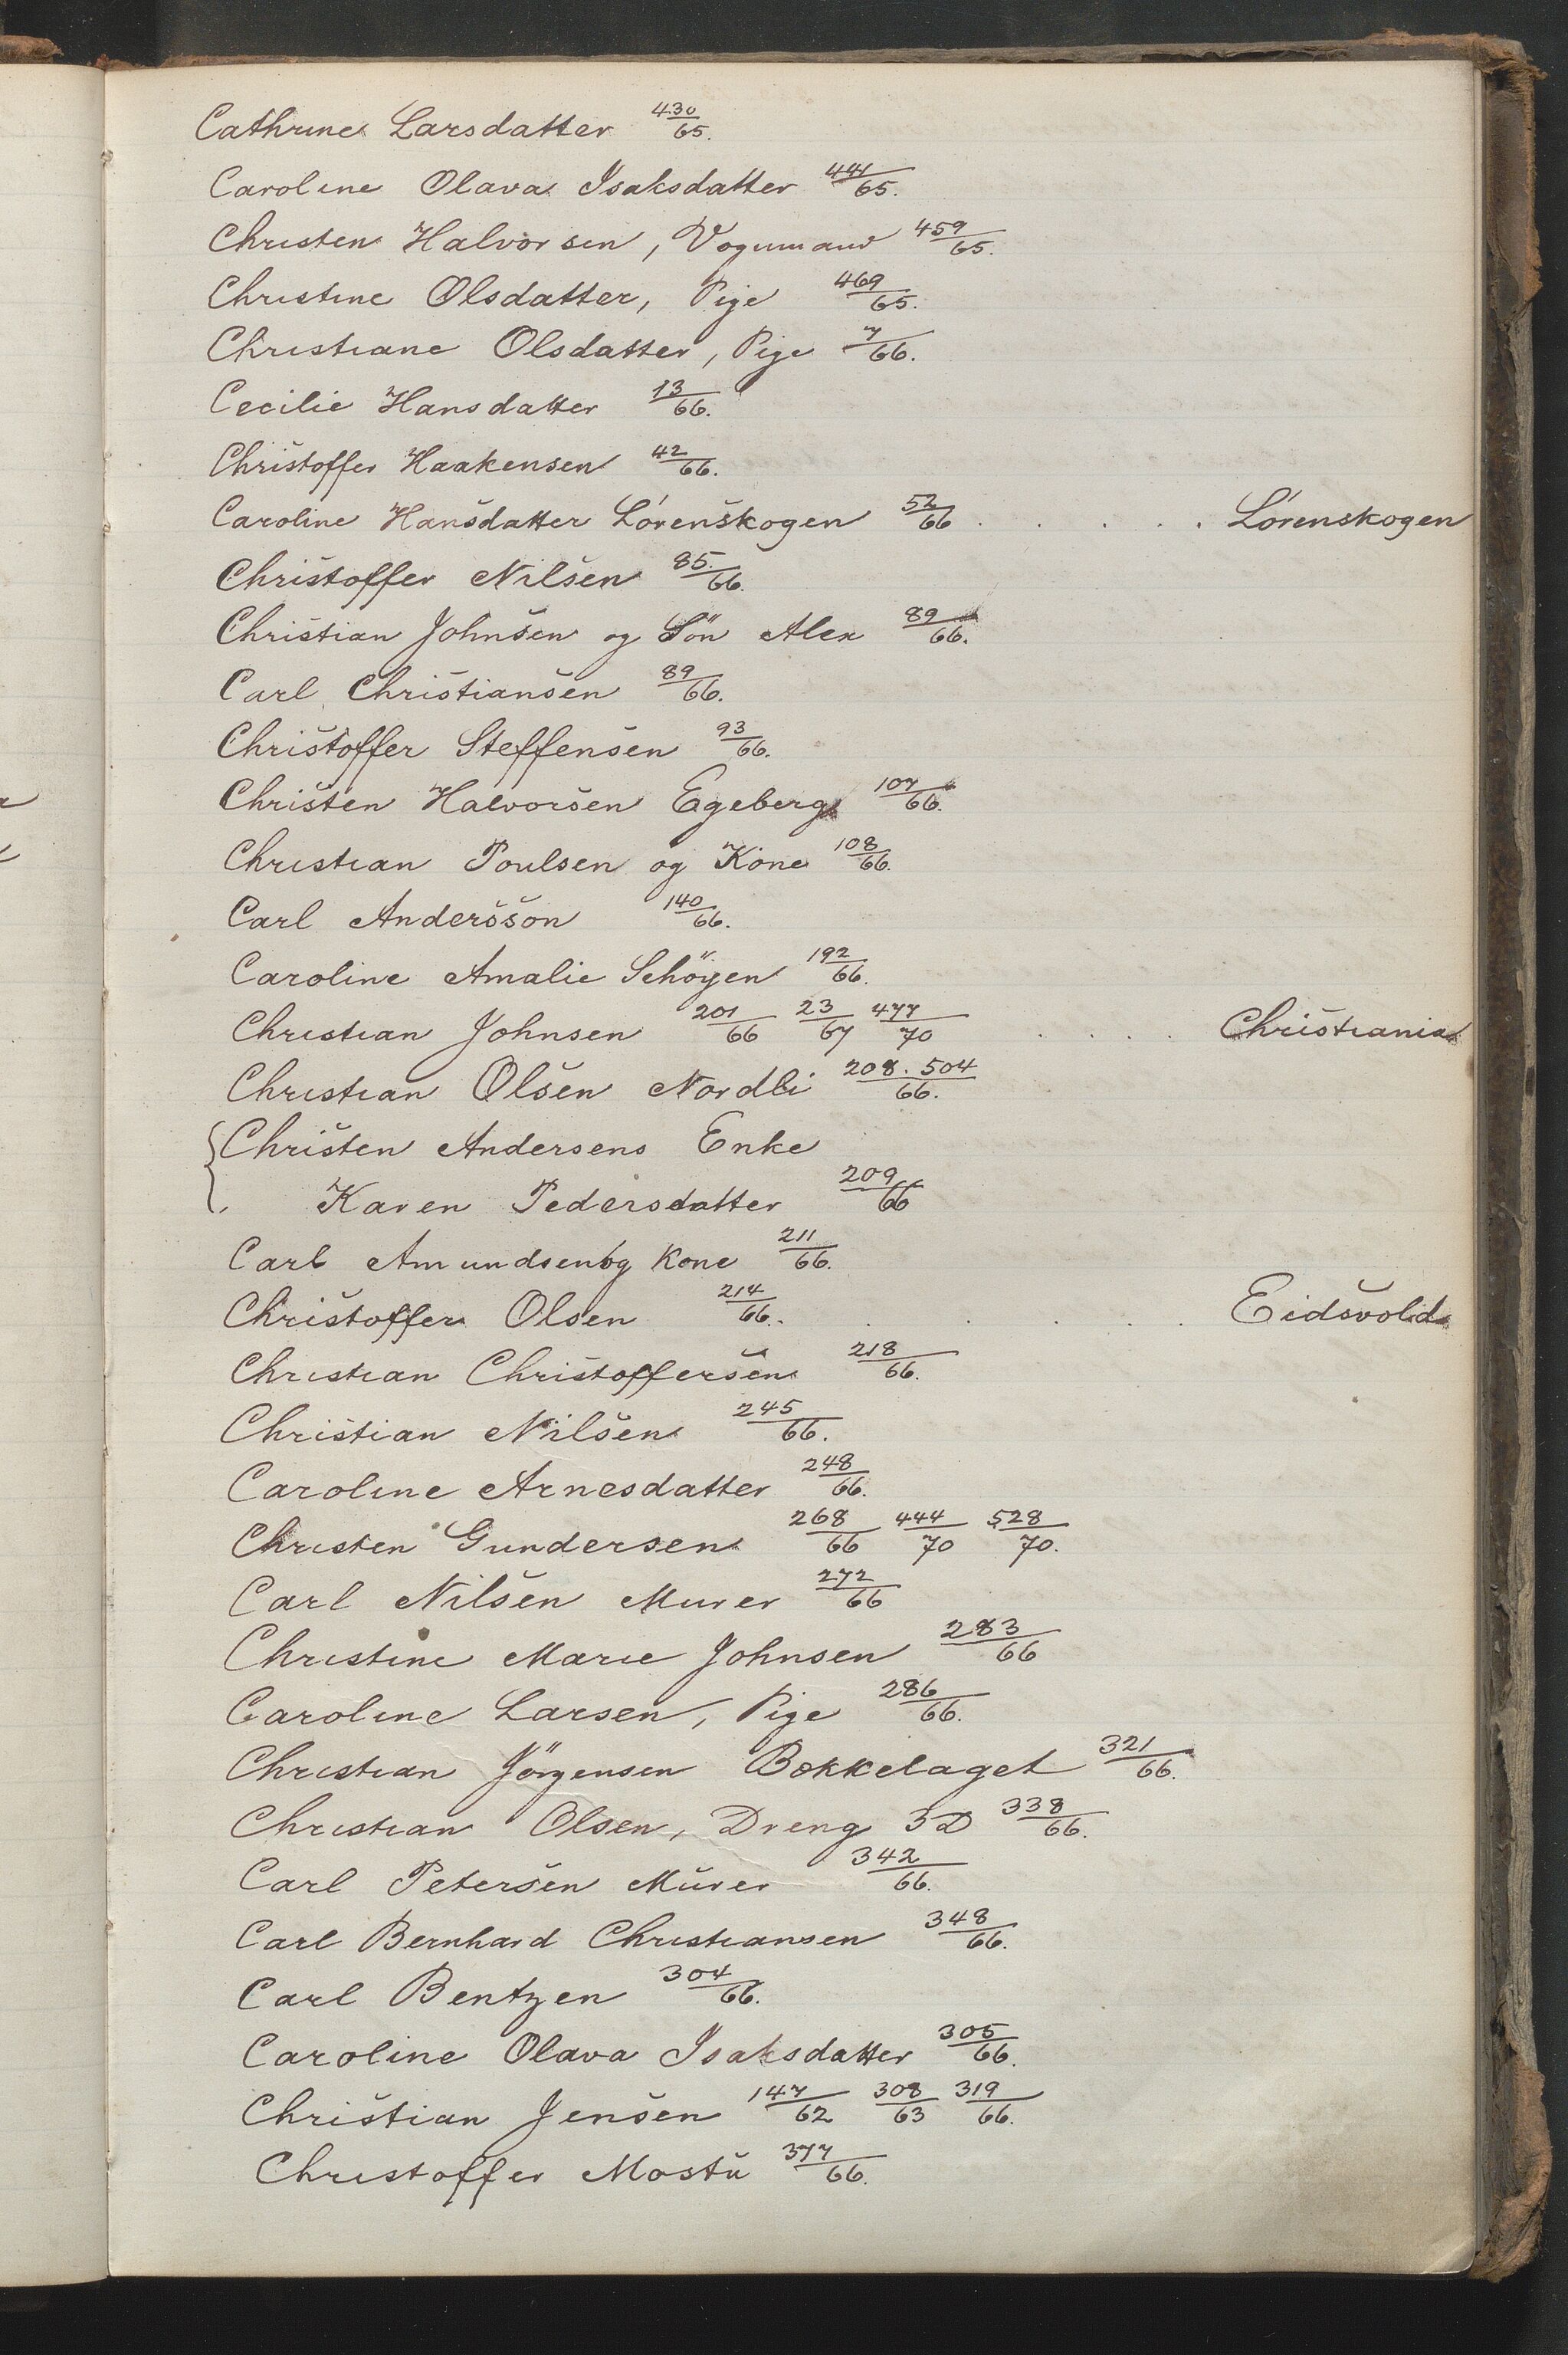 Cathrine Larsdatter 430/65.
Caroline Olava Isaksdatter 441/65.
Christen Halvorsen, Vognmand 459/65.
Christine Olsdatter, Pige 469/65.
Christiane Olsdatter, Pige 7/66.
Cecilie Hansdatter 13/66.
Christoffer Haakensen 42/66.
Caroline Hansdatter Lórenskogen 52/66 . . . . . Lórenskogen
Christoffer Nilsen 85/66.
Christian Johnsen og Sön Alex 89/66.
Carl Christiansen 89/66.
Christoffer Steffensen 93/66.
Christen Halvorsen Egeberg 107/66.
Christian Poulsen og Kone 108/66.
Carl Andersson 140/66.
Caroline Amalie Schöyen 192/66.
Christian Johnsen 201/66 23/67 477/70 . . . . Christiania
Christian Olsen Nordli 208. 504/66.
Christen Andersens Enke
Karen Pedersdatter 209/66
Carl Amundsen og Kone 211/66.
Christoffer Olsen 214/66. . . . . . Eidsvold
Christian Christoffersen 218/66.
Christian Nilsen 245/66.
Caroline Arnesdatter 248/66.
Christen Gundersen 268/66 444/70 528/70.
Carl Nilsen Murer 272/66
Christine Marie Johnsen 283/66
Caroline Larsen, Pige 286/66.
Christian Jörgensen Bækkelaget 321/66.
Christian Olsen, Dreng 3D 338/66.
Carl Petersen Murer 342/66.
Carl Bernhard Christiansen 348/66.
Carl Bentzen 304/66.
Caroline Olava Isaksdatter 305/66.
Christian Jensen 147/62 308/63 319/66.
Christoffer Mostu 377/66.